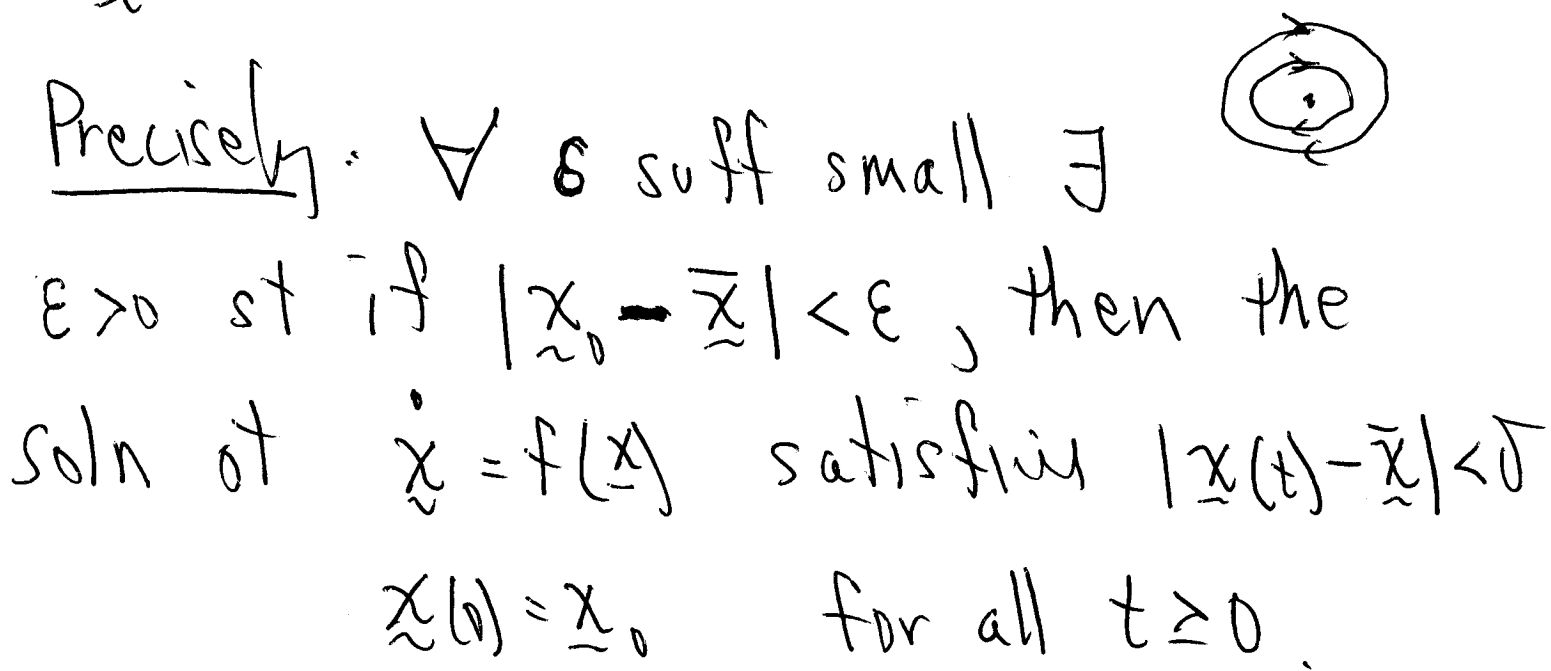 Precisely: ∀ δ suff small ∃
ε>0 st if |x̰₀ - x̰̄| < ε, then the
soln of ẋ̰ = f(x̲) satisfies |x̰(t) - x̰̄| < δ
x̰(0) = x̲₀ for all t ≥ 0.